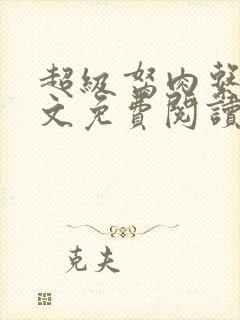 超級肉
文免費閱讀
克夫